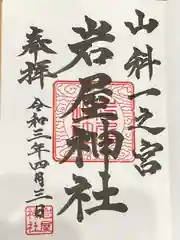 山科一之宮
岩屋神社
奉拝
令和三年四月三日